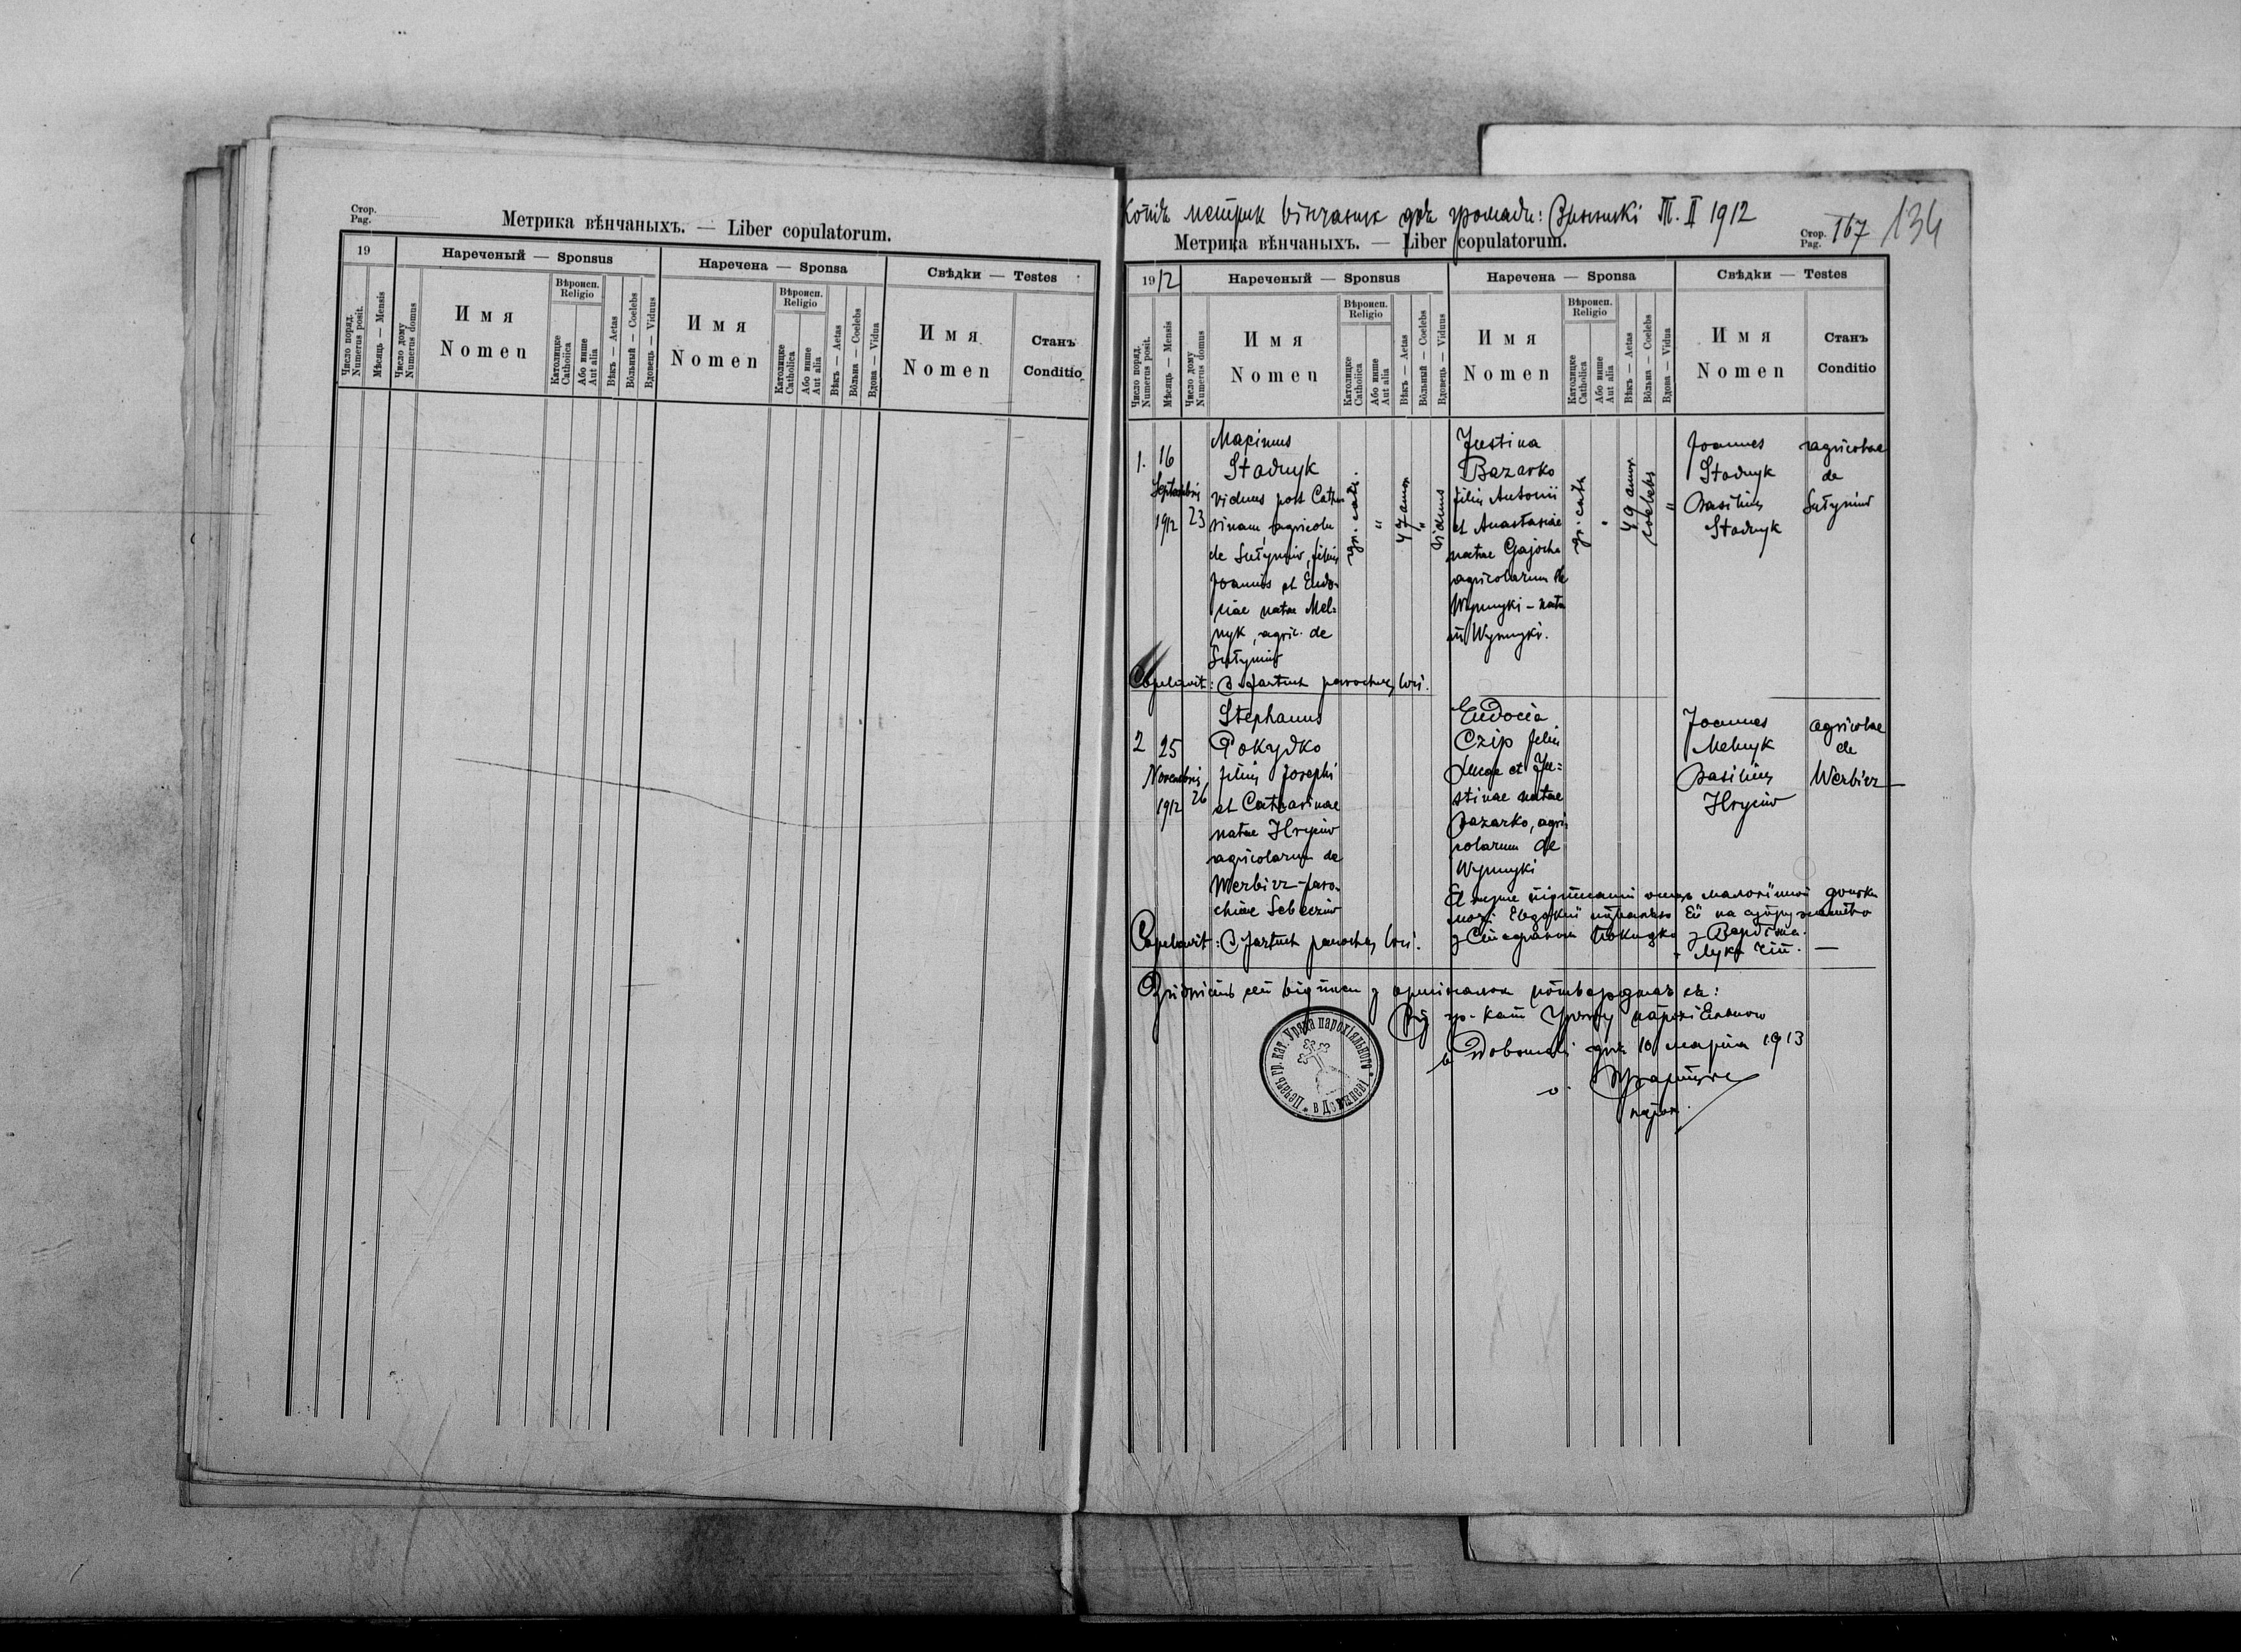 Стор.
Pag.
Метрика вѣнчаныхъ. — Liber copulatorum.
19
Нареченый — Sponsus
Наречена — Sponsa
Свѣдки — Testes
Число поряд.
Numerus posit.
Мѣсяць — Mensis
Число дому
Numerus domus
Имя
Nomen
Вѣроисп.
Religio
Католицке
Catholica
Або инше
Aut alia
Вѣкъ — Aetas
Вôльный — Coelebs
Вдовець — Viduus
Имя
Nomen
Вѣроисп.
Religio
Католицке
Catholica
Або инше
Aut alia
Вѣкъ — Aetas
Вôльна — Coelebs
Вдова — Vidua
Имя
Nomen
Станъ
Conditio
Копія метрик вінчаних для громади: III. II 1912
Метрика вѣнчаныхъ. — Liber copulatorum.
Стор.
Pag.
167
134
1912
Нареченый — Sponsus
Наречена — Sponsa
Свѣдки — Testes
Число поряд.
Numerus posit.
Мѣсяць — Mensis
Число дому
Numerus domus
Имя
Nomen
Вѣроисп.
Religio
Католицке
Catholica
Або инше
Aut alia
Вѣкъ — Aetas
Вôльный — Coelebs
Вдовець — Viduus
Имя
Nomen
Вѣроисп.
Religio
Католицке
Catholica
Або инше
Aut alia
Вѣкъ — Aetas
Вôльна — Coelebs
Вдова — Vidua
Имя
Nomen
Станъ
Conditio
1.
16
Septembris
1912
23
Maximus
Stadnyk
viduus post Catha
rinam, agricola
de Sułymiw, filius
Joannis et Eudo-
ciae natae Mel-
nyk, agric. de
Sułymiw
gr. cath.
"
47 annor.
"
viduus
Justina
Bazarko
filia Antonii
et Anastasiae
natae Gajocha
agricolarum de
Wynnyki - nata
in Wynnyki.
gr. cath
"
49 annor.
coelebs
"
Joannes
Stadnyk
Basilius
Stadnyk
agricolae
de
Sułymiw
Copulavit: parochus loci.
2
25
Novembris
1912
26
Stephanus
Pokydko
filius Josephi
et Catharinae
natae Hryciw
agricolarum de
Werbiez - paro-
chiae
Eudocia
Czip filia
Lucae et Ju-
stinae natae
Bazarko, agri
colarum de
Wynnyki
Joannes
Melnyk
Basilius
Hryciw
agricolae
de
Werbiez
підписаний отець малолітної доньки
моєї Евдокії призваляю Єй на супружество
з Стефаном Покидко з
Лука Ціп. —
Copulavit: parochus loci.
Згідність сеї відписи з оригіналом потверджає ся:
Від гр.-кат Уряду парохіяльного
в дня 10 марта 1913
о.
парох.
Печать гр. кат. Уряда парохіяльного